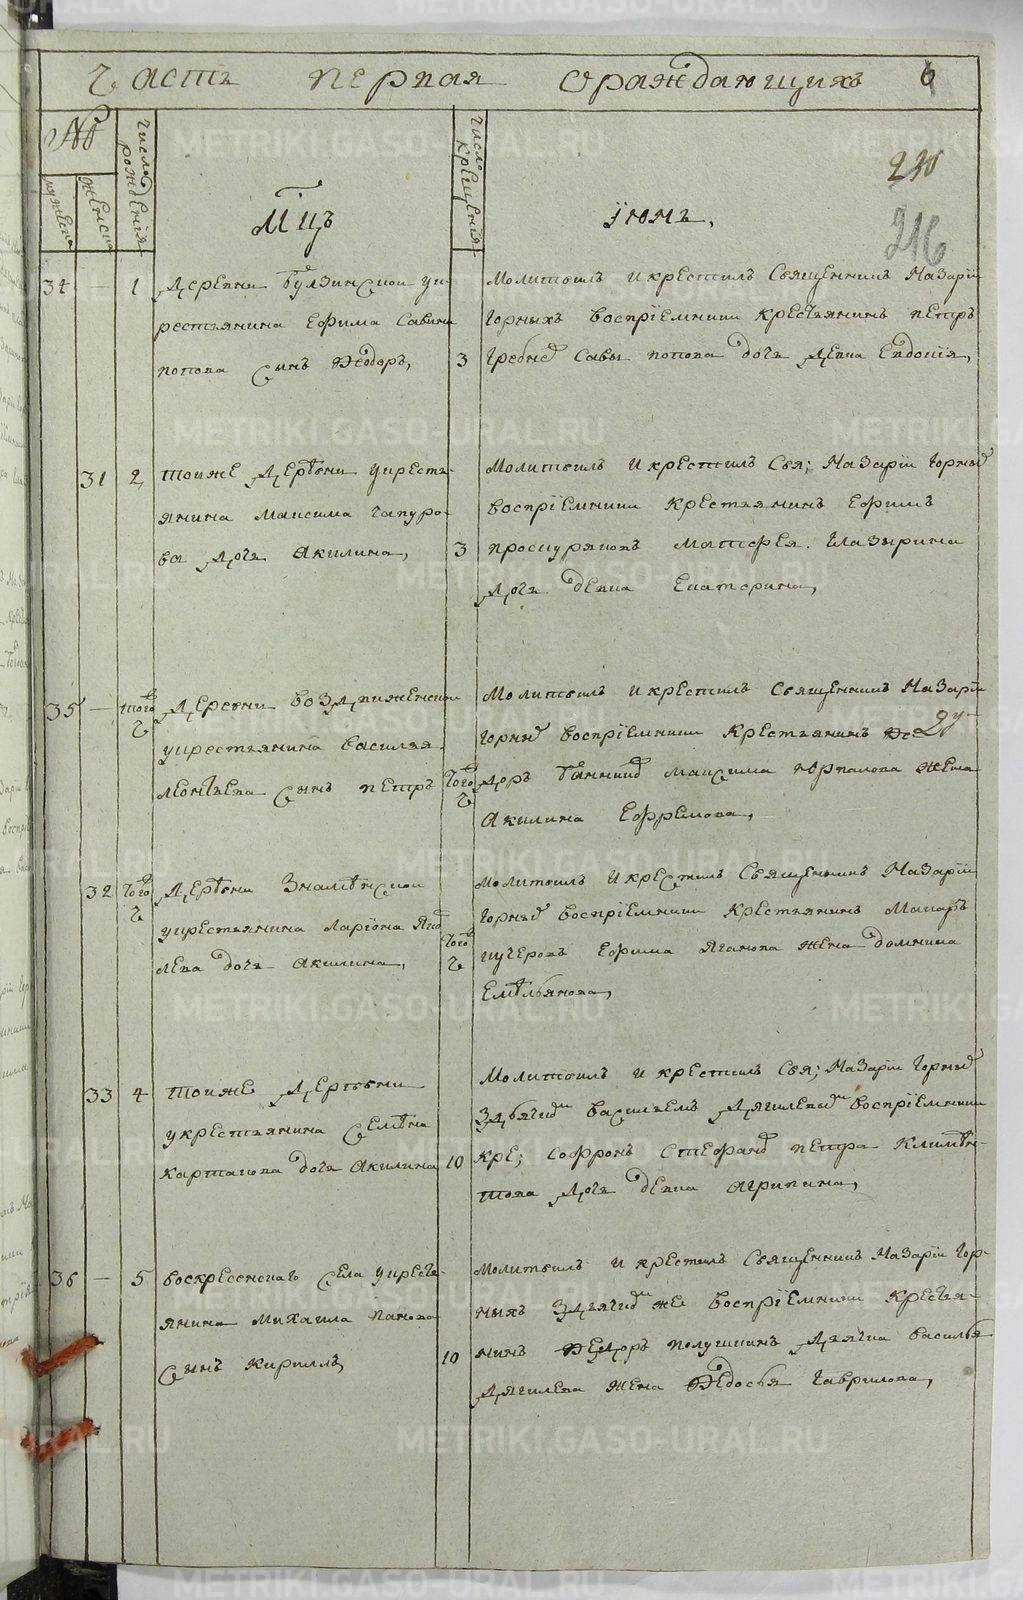 Часть первая ораждающихъ 6
№
мужеска
женска
число рожденїя
число крещенїя
230
216
Мцъ їюнь,
34 — 1 Деревни Булзинскои у к-
рестьянина Ефима Савина
попова сынъ Федоръ,
3
Молитвилъ И крестилъ Священникъ Назарїи
Горныхъ воспрїемники Крестьянинъ петръ
Савы попова дочь девка Евдокїя,
31 2 тоиже деревни укресть-
янина Максима Чапуро-
ва дочь Акилина,
3
Молитвилъ И крестилъ Свя; Назарїи Горныхъ
воспрїемники Крестьянинъ Ефимъ
проскуряковъ Матфея Глазырина
дочь девка Екатерина,
35 — того ч деревни воздвиженскои
укрестьянина Василья
Леонтьева сынъ петръ
того ч
Молитвилъ И крестилъ Священникъ Назарїи
Горныхъ воспрїемники Крестьянинъ Фе
доръ Банникъ Максима жена
Акилина Ефремова,
32 того ч Деревни Знаменскои
укрестьянина Ларїона
лева дочь Акилина,
того ч
молитвилъ И крестилъ Священникъ Назарїи
Горныхъ воспрїемники Крестьянинъ Макаръ
кучеровъ Ефима Яганова жена домника
Емельянова,
33 4 тоиже деревни
укрестьянина Семена
Карташова дочь Акилина
10
Молитвилъ и крестилъ Свя; Назарїи Горныхъ
здьячкомъ Васильемъ Дягилевымъ воспрїемники
кре; софронъ Стефановъ петра Климен-
това дочь девка агрипина,
36 — 5 воскресенскаго села укресть-
янина Михаила панова
сынъ Кириллъ,
10
Молитвилъ И крестилъ Священникъ Назарїи Гор-
ныхъ здьячкомъ же воспрїемники Крестья-
нинъ Федоръ полушкинъ дьячка Василья
Дягилева жена Федосья Гаврилова,
METRIKI.GASO-URAL.RU